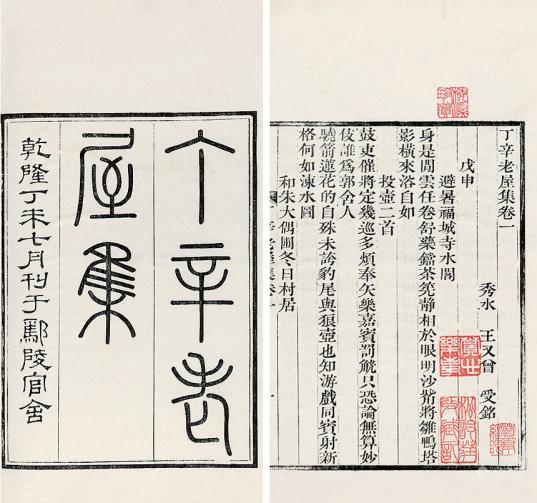 丁辛老
屋集
乾隆丁未七月刊于鄢陵官舍
丁辛老屋集卷一
秀水 王又曾 受銘
戊申
避暑福城寺水閣
身是閒雲任卷舒藥鐺茶筅静相於眼明沙觜將雛鴨塔
影橫來浴自如
投壺二首
鼓吏催將定幾巡多煩奉矢樂嘉賓罰觥只恐論無算妙
伎誰爲郭令人
驍箭蓮花的自殊未誇豹尾與狼壺也知游戲同賓射新
格何如涑水圖
和朱大偶圃冬日村居